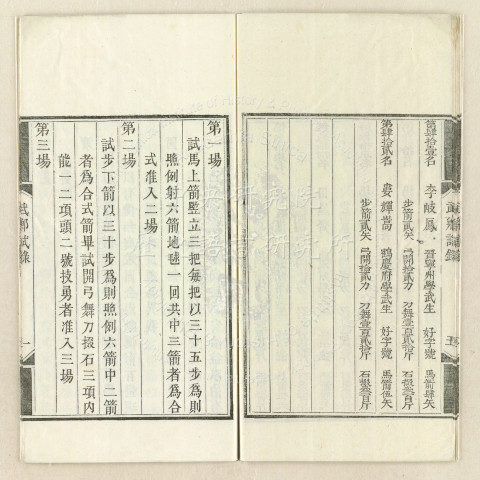 第肆拾壹名 李岐鳳 晋寧州學武生 好字號 馬箭肆矢
步箭貳矢 弓開拾貳力 刀舞壹百貳拾斤 石掇叁百斤
第肆拾貳名 婁輝嵩 鶴慶府學武生 好字號 馬箭伍矢
步箭貳矢 弓開拾貳力 刀舞壹百貳拾斤 石掇叁百斤
武鄉試錄
第一場
試馬上箭竪立三把每把以三十五步爲則
照例射六箭地毬一回共中三箭者爲合
式准入二場
第二場
試步下箭以三十步爲則照例六箭中二箭
者爲合式箭畢試開弓舞刀掇石三項内
能一二項頭二號技勇者准入三場
第三場
武鄉試錄 一